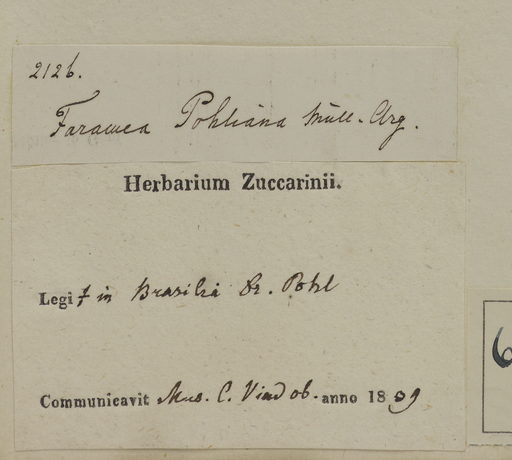 2126.
Faramea Pohliana Müll-Arg.
Herbarium Zuccarinii.
Legit in Brasilia Dr. Pohl
Communicavit Mus. C. Vindob. anno 1839
6